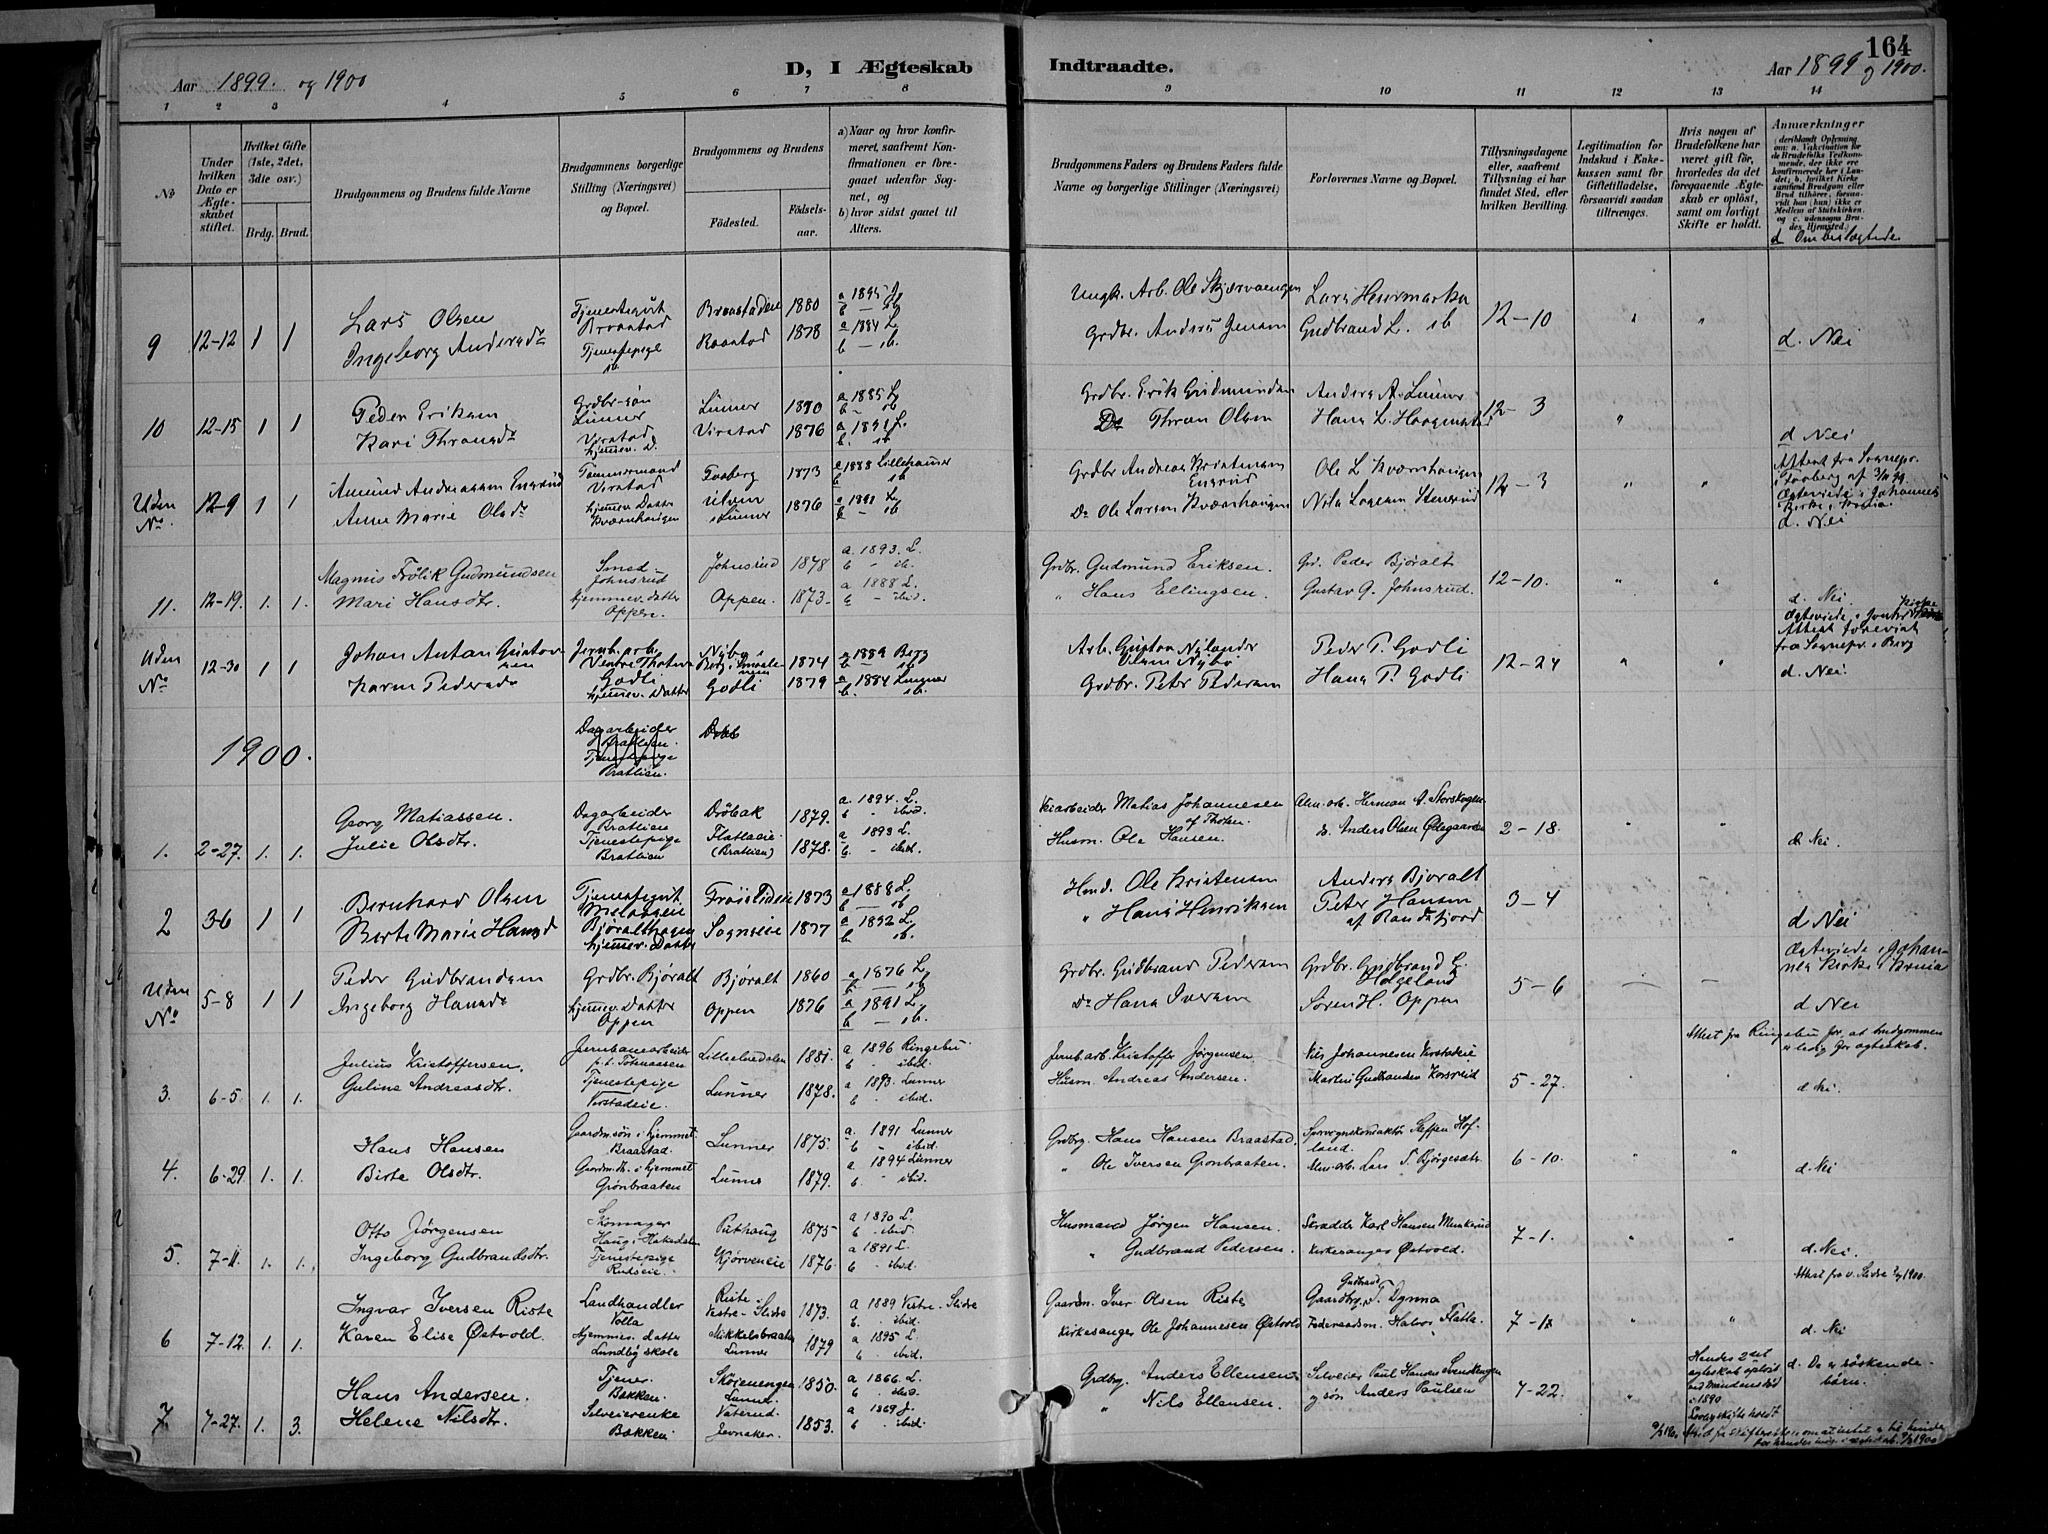 164
Aar 1899. og 1900
D, I Ægteskab Indtraadte.
Aar 1899 og 1900.
1 2 3 4 5 6 7 8 9 10 11 12 13 14
No
Under hvilken Dato er Ægteskabet stiftet.
Hvilket Gifte (1ste, 2det, 3dte osv.)
Brdg. Brud.
Brudgommens og Brudens fulde Navne
Brudgommens borgerlige Stilling (Næringsvei) og Bopæl.
Brudgommens og Brudens
Fødested. Fødselsaar.
a) Naar og hvor konfirmeret, saafremt Konfirmationen er foregaaet udenfor Sognet, og
b) hvor sidst gaaet til Alters.
Brudgommens Faders og Brudens Faders fulde Navne og borgerlige Stillinger (Næringsvei)
Forlovernes Navne og Bopæl.
Tillysningsdagene eller, saafremt Tillysning ei har fundet Sted, efter hvilken Bevilling.
Legitimation for Indskud i Enkekassen samt for Giftetilladelse, forsaavidt saadan tiltrænges.
Hvis nogen af Brudefolkene har været gift før, hvorledes da det foregaaende Ægteskab er opløst, samt om lovligt Skifte er holdt.
Anmærkninger
d Om beslægtede
9 12-12 1 1 Lars Olsen Tjenestegut Braastad 1880 a 1895 J. b ib Ungk. Arb. Ole Lars 12-10 " "
Ingeborg Andersd. Tjenestepige ib. Raastad 1878 a 1884 L. b - ib. Grdbr. Anders Jensen Gudbrand L. ib d. Nei
10 12-15 1 1 Peder Eriksen Grdbr-søn Linner Linner 1870 a 1885 L. b - ib Grdbr. Erik Gudmundsen Anders A. Linner 12-3 "
Kari Thronsd. Virstad hjemmev. D. Virstad 1876 a 1891 L. b. ib Do Thron Olsen Hans L. d Nei
Uden No. 12-9 1 1 Amund Andreassen Engrud Tømmermand Virstad Faaberg 1873 a 1888 Lillehammer b ib Grdbr Andreas Kristiansen Engrud Ole L Kværnhaugen 12-3 " " Attest fra Sognepr. i Faaberg af
Anne Marie Olsd. hjemmev. Datter Kværnhaugen Linner 1876 a 1891 L. b - ib Do Ole Larsen Kværnhaugen Nils Larsen Stenerud Ægteviede i Johannes Kirke i Kristia. d. Nei
11. 12-19. 1. 1. Magnus Frölik Gudmundsen Smed Johnsrud Johnsrud 1878 a. 1893. L. b " ib. Grdbr. Gudmund Eriksen. Gr. Peder Bjøralt 12-10. " "
Mari Hansdtr. hjemmev. datter Oppen. Oppen. 1873. a 1888 L. b " ibid. " Hans Ellingsen. Gustav G. Johnsrud. d. Nei.
Uden No 12-30 1 1 Johan Anton Gustavsen Jernb. arb. Vestre Thoten Nybø i Berg i Smaalenene 1874 a 1889 Berg b - ib Arb. Gustav Nylander Peder P. Godli 12-24 " " Ægteviede i Attest forevist fra Sognepr. i Berg
Karen Pedersd. Godli hjemmev. Datter Godli 1879 a 1884 Lunner b. ib. Grdbr. Peter Pedersen Hans P. Godli d. Nei.
1900. Dagarbeider Bratlien. Tjenestepige Bratlien.
1. 2-27. 1. 1. Georg Matiassen. Dagarbeider Bratlien Drøbak 1879. a. 1894. L. b " ibid. Veiarbeider Matias Johannesen af Thoten. Alm. arb. Herman A. Storskogen 2-18. " "
Julie Olsdtr. Tjenestepige Bratlien Flatlaeie (Bratlien) 1878. a 1893 L. b. " ibid Husm. Ole Hansen. do. Anders Olsen Ødegaarden d. Nei.
2 3-6 1 1 Bernhard Olsen Tjenestegut Frøislideie 1873 a 1888 L. b - ib Husmd. Ole Kristensen Anders Bjøralt 3-4
Berte Marie Hansd Bjøralthagen hjemmev. Datter Sogneeie 1877 a 1892 L. b. ib. " Hans Henriksen Peter Hansen af Randsfjord d Nei
Uden No 5-8 1 1 Peder Gudbrandsen Grdbr. Bjøralt Bjøralt 1860 a 1876 L. b - ib Grdbr. Gudbrand Pedersen Grdbr. Gudbrand G. Helgeland 5-6 - - Ægteviede i Johannes Kirke i Kristia
Ingeborg Hansd. hjemmev. Datter Oppen Oppen 1876 a 1891 L. b - ib. Do Hans Iversen Søren H. Oppen d Nei
3. 6-5. 1. 1. Julius Kristoffersen. Jernbanearbeider Lilleelvedalen 1881. a. 1896 Ringebu b " ibid. Jernb. arb. Kristoffer Jørgensen. Nils Johannesen Virstadeie 5-27. " Attest fra Ringebu for, at brudgommen er ledig for ægteskab.
Guline Andreasdtr. Tjenestepige Virstadeie. Lunner 1878. a 1893. Lunner b " ibid. Husm. Andreas Andersen. Martin Gudbrandsen Korsrud d Nei.
4. 6-29. 1. 1. Hans Hansen Gaardm. søn i hjemmet Braastad. Lunner 1875. a. 1891 Lunner b " ibid. Grdbrg. Hans Hansen Braastad. Steffen Hofland. 6-10. " "
Birte Olsdtr. Gaardm. dtr. i hjemmet Grönbraaten Lunner 1879. a 1894 Lunner b. " ibid. " Ole Iversen Grönbraaten. Alm. arb. Lars T. Bjørgesætr. d. Nei
5. 7-11. 1. 1. Otto Jørgensen Skomager Haug i Hakedalen Puthaug 1875 a 1890 L. b. ibid. Husmand Jørgen Hansen. Skrædder Karl Hansen Munkerud 7-1. " "
Ingeborg Gudbrandsdtr. Tjenestepige Rudseie. Kjørveneie 1876. a 1891 L. b " ibid. " Gudbrand Pedersen. Kirkesanger Østvold. d. Nei.
6 7-12. 1. 1. Ingvar Iversen Riste Landhandler Volla Riste i Vestre-Slidre 1873. a 1889 Vestre-Slidre b. " ibid. Gaardm. Iver Olsen Riste Gaardbrg. Gudbrand T. Dynna 7-1. " " Attest fra v. Slidre 1900.
Karen Elise Østvold. Hjemmev. datter Lundby skole Mikkelsbraaten Lunner 1879 a 1895 L. b " ibid. Kirkesanger Ole Johannesen Østvold Føderaadsm. Halvor Flatla. d. Nei
7. 7-27. 1. 3. Hans Andersen. Tjener Bækken. Skøienengen Lund. 1850. a 1866 L. b " ibid. Grdbrg. Anders Ellensen. Selveier Paul Hansen Svendengen 7-22. " Hendes 2det ægteskab opløst ved mandens død i 1890 d. De er søskendebørn.
Helene Nilsdtr. Selveierenke Bækken Vaterud Jevnaker. 1853. a 1869 J. b " ibid. " Nils Ellensen. og søn Anders Paulsen Lovlig skifte holdt